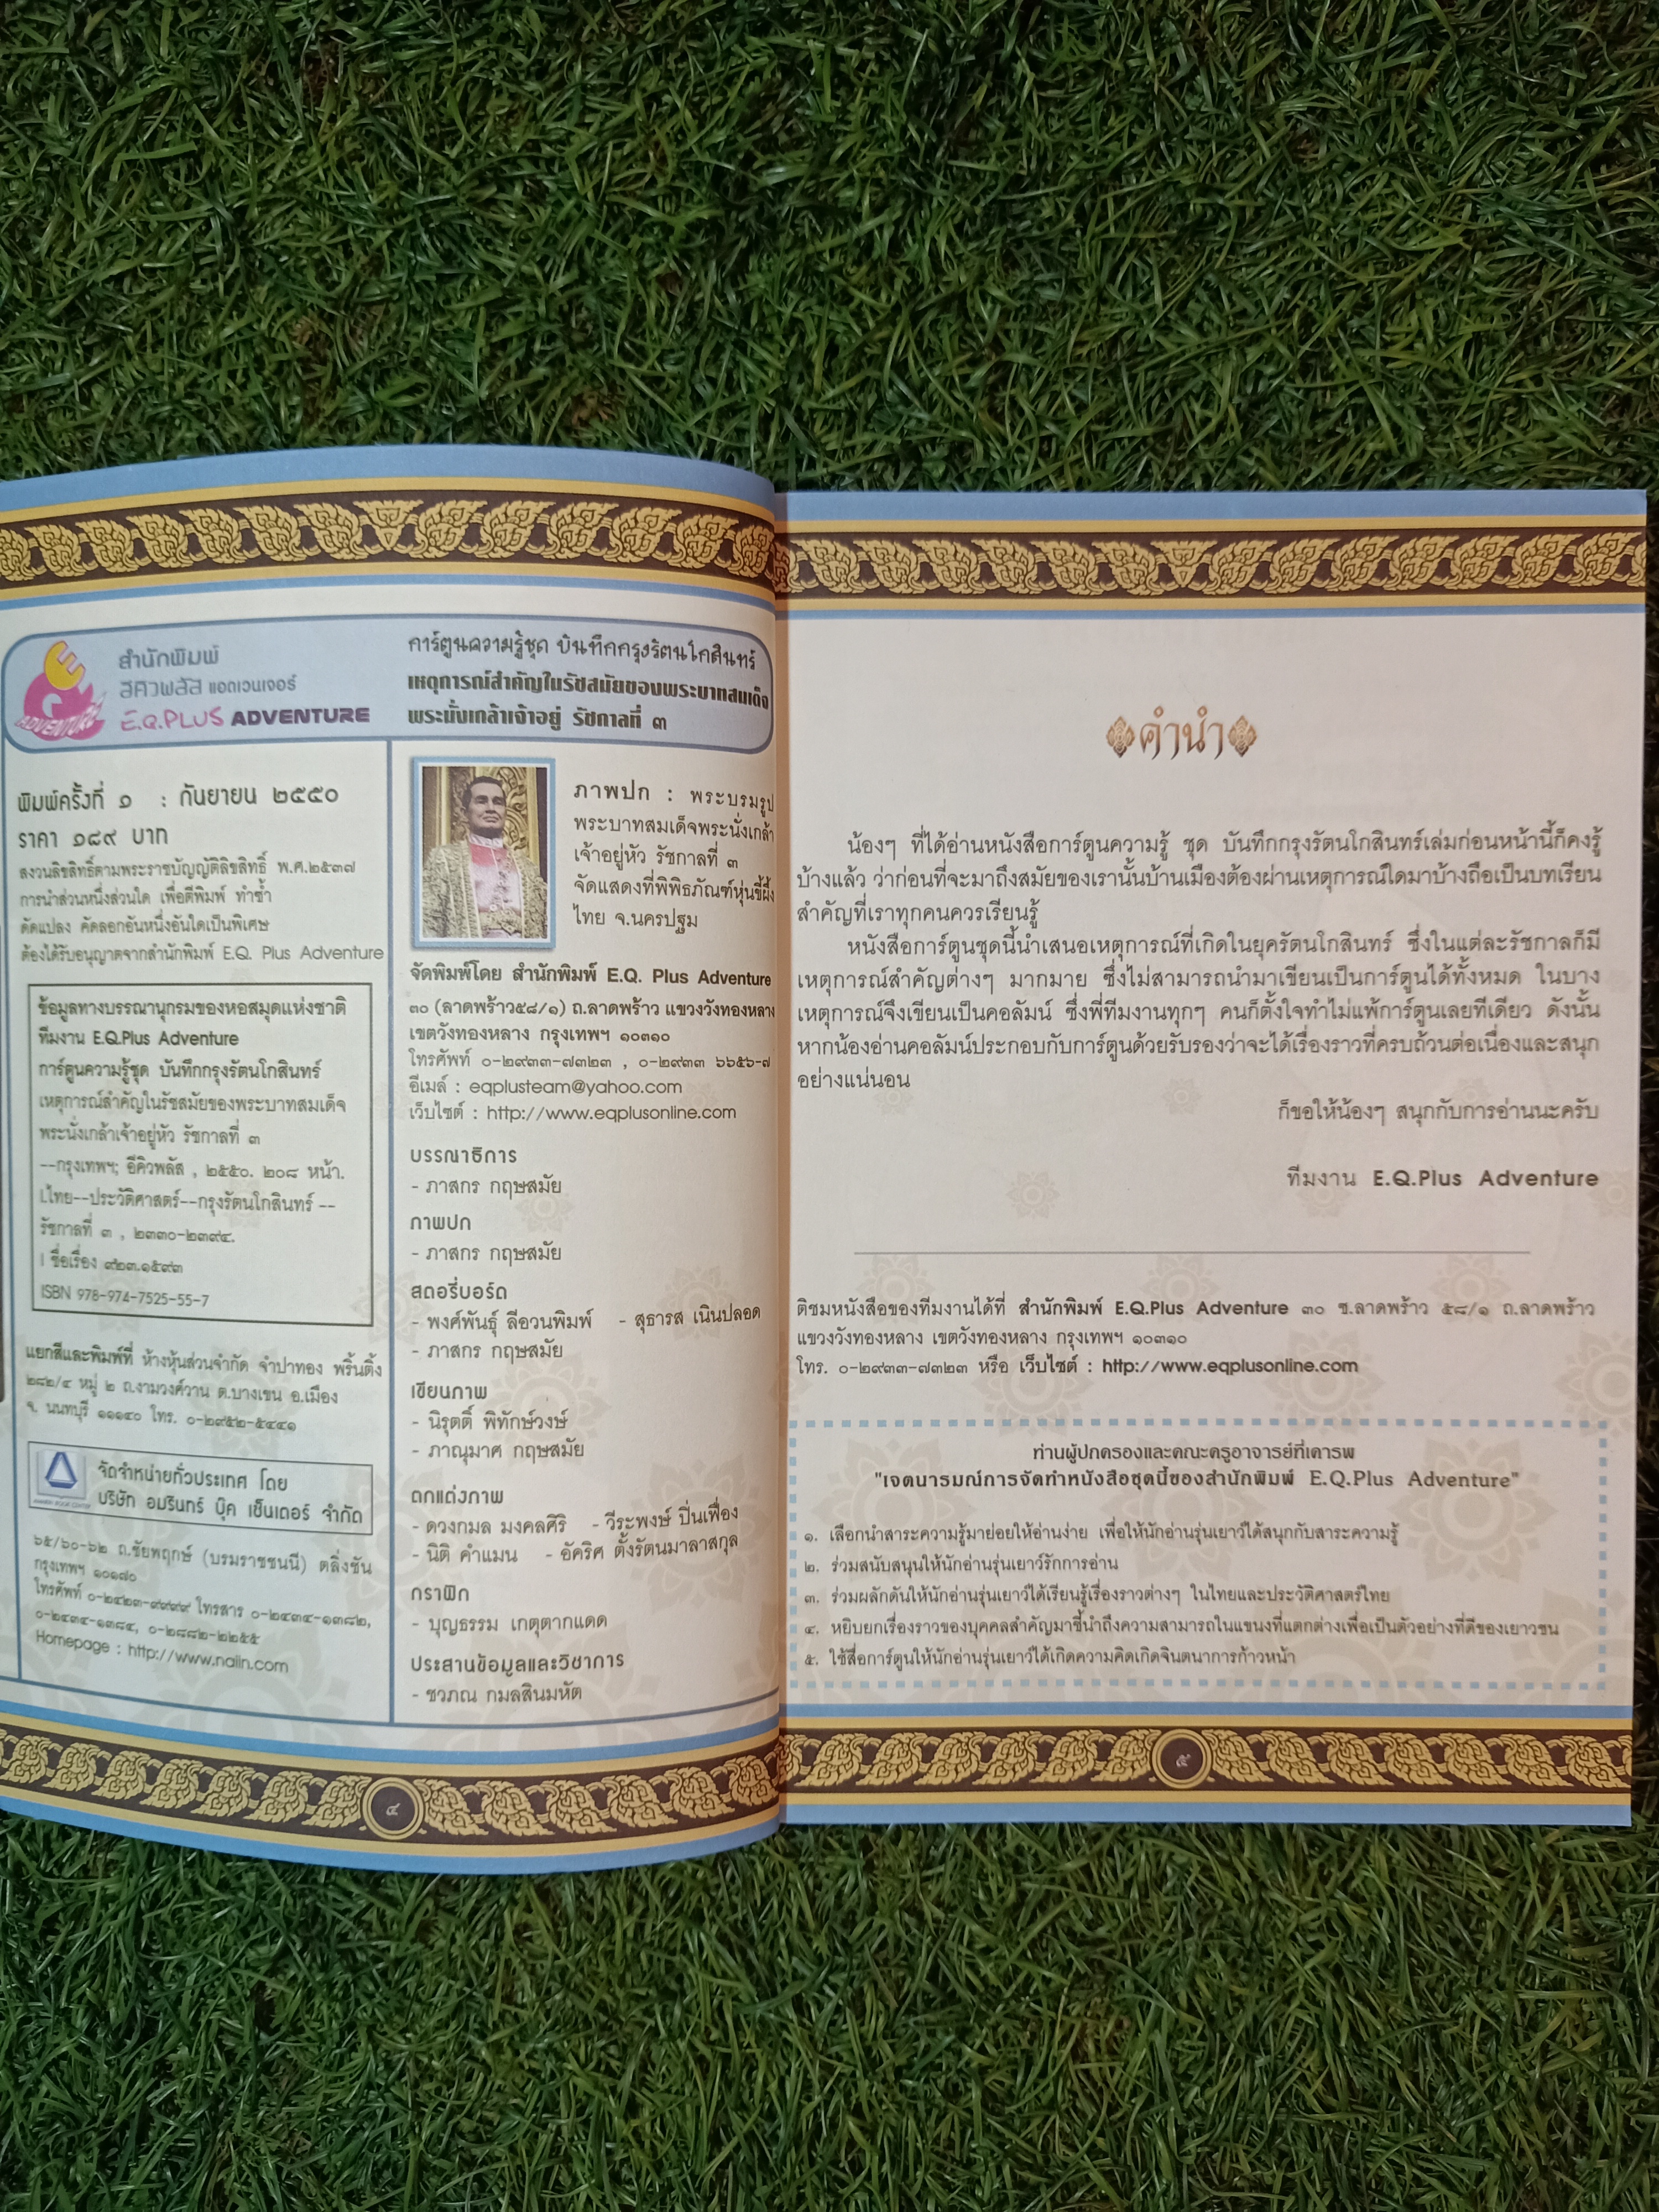 สำนักพิมพ์
อีคิวพลัส แอดเวนเจอร์
E.Q.PLUS ADVENTURE
ADVENTURE
การ์ตูนความรู้ชุด บันทึกกรุงรัตนโกสินทร์
เหตุการณ์สำคัญในรัชสมัยของพระบาทสมเด็จ
พระนั่งเกล้าเจ้าอยู่ รัชกาลที่ ๓
พิมพ์ครั้งที่ ๑ : กันยายน ๒๕๕๐
ราคา ๑๘๙ บาท
สงวนลิขสิทธิ์ตามพระราชบัญญัติลิขสิทธิ์ พ.ศ.๒๕๓๗
การนำส่วนหนึ่งส่วนใด เพื่อตีพิมพ์ ทำซ้ำ
ดัดแปลง คัดลอกอันหนึ่งอันใดเป็นพิเศษ
ต้องได้รับอนุญาตจากสำนักพิมพ์ E.Q. Plus Adventure
ข้อมูลทางบรรณานุกรมของหอสมุดแห่งชาติ
ทีมงาน E.Q.Plus Adventure
การ์ตูนความรู้ชุด บันทึกกรุงรัตนโกสินทร์
เหตุการณ์สำคัญในรัชสมัยของพระบาทสมเด็จ
พระนั่งเกล้าเจ้าอยู่หัว รัชกาลที่ ๓
--กรุงเทพฯ; อีคิวพลัส , ๒๕๕๐. ๒๐๘ หน้า.
I.ไทย--ประวัติศาสตร์--กรุงรัตนโกสินทร์ --
รัชกาลที่ ๓ , ๒๓๓๐-๒๓๙๔.
I ชื่อเรื่อง ๙๒๓.๑๕๙๓
ISBN 978-974-7525-55-7
แยกสีและพิมพ์ที่ ห้างหุ้นส่วนจำกัด จำปาทอง พริ้นติ้ง
๒๘๒/๔ หมู่ ๒ ถ.งามวงศ์วาน ต.บางเขน อ.เมือง
จ. นนทบุรี ๑๑๑๔๐ โทร. ๐-๒๙๕๒-๕๔๔๑
จัดจำหน่ายทั่วประเทศ โดย
บริษัท อมรินทร์ บุ๊ค เซ็นเตอร์ จำกัด
๖๕/๖๐-๖๒ ถ.ชัยพฤกษ์ (บรมราชชนนี) ตลิ่งชัน
กรุงเทพฯ ๑๐๑๗๐
โทรศัพท์ ๐-๒๔๒๓-๙๙๙๙ โทรสาร ๐-๒๔๓๔-๑๓๘๒,
๐-๒๔๓๔-๑๓๘๔, ๐-๒๘๘๒-๒๒๕๕
Homepage : http://www.naiin.com
๔
ภาพปก : พระบรมรูป
พระบาทสมเด็จพระนั่งเกล้า
เจ้าอยู่หัว รัชกาลที่ ๓
จัดแสดงที่พิพิธภัณฑ์หุ่นขี้ผึ้ง
ไทย จ.นครปฐม
จัดพิมพ์โดย สำนักพิมพ์ E.Q. Plus Adventure
๓๐ (ลาดพร้าว๕๘/๑) ถ.ลาดพร้าว แขวงวังทองหลาง
เขตวังทองหลาง กรุงเทพฯ ๑๐๓๑๐
โทรศัพท์ ๐-๒๙๓๓-๗๓๒๓ , ๐-๒๙๓๓ ๖๖๕๖-๗
อีเมล์ : eqplusteam@yahoo.com
เว็บไซต์ : http://www.eqplusonline.com
บรรณาธิการ
- ภาสกร กฤษสมัย
ภาพปก
- ภาสกร กฤษสมัย
สตอรี่บอร์ด
- พงศ์พันธุ์ ลีอวนพิมพ์ - สุธารส เนินปลอด
- ภาสกร กฤษสมัย
เขียนภาพ
- นิรุตติ์ พิทักษ์วงษ์
- ภาณุมาศ กฤษสมัย
ตกแต่งภาพ
- ดวงกมล มงคลศิริ - วีระพงษ์ ปิ่นเฟื่อง
- นิติ คำแมน - อัคริศ ตั้งรัตนมาลาสกุล
กราฟิก
- บุญธรรม เกตุตากแดด
ประสานข้อมูลและวิชาการ
- ชวภณ กมลสินมหัต
คำนำ
น้องๆ ที่ได้อ่านหนังสือการ์ตูนความรู้ ชุด บันทึกกรุงรัตนโกสินทร์เล่มก่อนหน้านี้ก็คงรู้
บ้างแล้ว ว่าก่อนที่จะมาถึงสมัยของเรานั้นบ้านเมืองต้องผ่านเหตุการณ์ใดมาบ้างถือเป็นบทเรียน
สำคัญที่เราทุกคนควรเรียนรู้
หนังสือการ์ตูนชุดนี้นำเสนอเหตุการณ์ที่เกิดในยุครัตนโกสินทร์ ซึ่งในแต่ละรัชกาลก็มี
เหตุการณ์สำคัญต่างๆ มากมาย ซึ่งไม่สามารถนำมาเขียนเป็นการ์ตูนได้ทั้งหมด ในบาง
เหตุการณ์จึงเขียนเป็นคอลัมน์ ซึ่งพี่ทีมงานทุกๆ คนก็ตั้งใจทำไม่แพ้การ์ตูนเลยทีเดียว ดังนั้น
หากน้องอ่านคอลัมน์ประกอบกับการ์ตูนด้วยรับรองว่าจะได้เรื่องราวที่ครบถ้วนต่อเนื่องและสนุก
อย่างแน่นอน
ก็ขอให้น้องๆ สนุกกับการอ่านนะครับ
ทีมงาน E.Q.Plus Adventure
ติชมหนังสือของทีมงานได้ที่ สำนักพิมพ์ E.Q.Plus Adventure ๓๐ ซ.ลาดพร้าว ๕๘/๑ ถ.ลาดพร้าว
แขวงวังทองหลาง เขตวังทองหลาง กรุงเทพฯ ๑๐๓๑๐
โทร. ๐-๒๙๓๓-๗๓๒๓ หรือ เว็บไซต์ : http://www.eqplusonline.com
ท่านผู้ปกครองและคณะครูอาจารย์ที่เคารพ
"เจตนารมณ์การจัดทำหนังสือชุดนี้ของสำนักพิมพ์ E.Q.Plus Adventure"
๑. เลือกนำสาระความรู้มาย่อยให้อ่านง่าย เพื่อให้นักอ่านรุ่นเยาว์ได้สนุกกับสาระความรู้
๒. ร่วมสนับสนุนให้นักอ่านรุ่นเยาว์รักการอ่าน
๓. ร่วมผลักดันให้นักอ่านรุ่นเยาว์ได้เรียนรู้เรื่องราวต่างๆ ในไทยและประวัติศาสตร์ไทย
๔. หยิบยกเรื่องราวของบุคคลสำคัญมาชี้นำถึงความสามารถในแขนงที่แตกต่างเพื่อเป็นตัวอย่างที่ดีของเยาวชน
๕. ใช้สื่อการ์ตูนให้นักอ่านรุ่นเยาว์ได้เกิดความคิดเกิดจินตนาการก้าวหน้า
๕